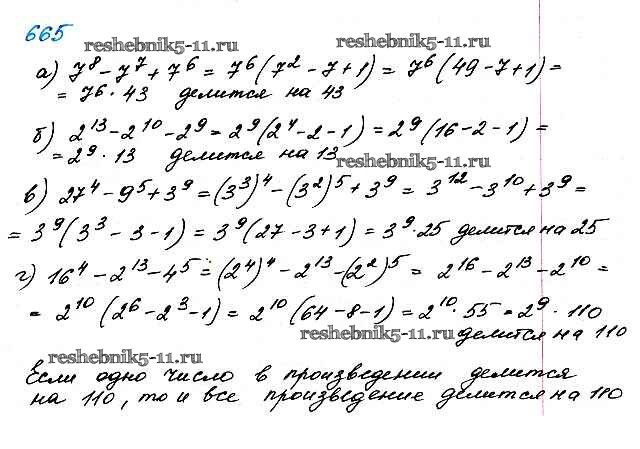 665
reshebnik5-11.ru reshebnik5-11.ru
а) 7⁸ - 7⁷ + 7⁶ = 7⁶ (7² - 7 + 1) = 7⁶ (49 - 7 + 1) =
= 7⁶ · 43 делится на 43
б) 2¹³ - 2¹⁰ - 2⁹ = 2⁹ (2⁴ - 2 - 1) = 2⁹ (16 - 2 - 1) =
= 2⁹ · 13 делится на 13
reshebnik5-11.ru
в) 27⁴ - 9⁵ + 3⁹ = (3³)⁴ - (3²)⁵ + 3⁹ = 3¹² - 3¹⁰ + 3⁹ =
= 3⁹ (3³ - 3 - 1) = 3⁹ (27 - 3 + 1) = 3⁹ · 25 делится на 25
г) 16⁴ - 2¹³ - 4⁵ = (2⁴)⁴ - 2¹³ - (2²)⁵ = 2¹⁶ - 2¹³ - 2¹⁰ =
= 2¹⁰ (2⁶ - 2³ - 1) = 2¹⁰ (64 - 8 - 1) = 2¹⁰ · 55 = 2⁹ · 110
reshebnik5-11.ru делится на 110
reshebnik5-11.ru
Если одно число в произведении делится
на 110, то и все произведение делится на 110